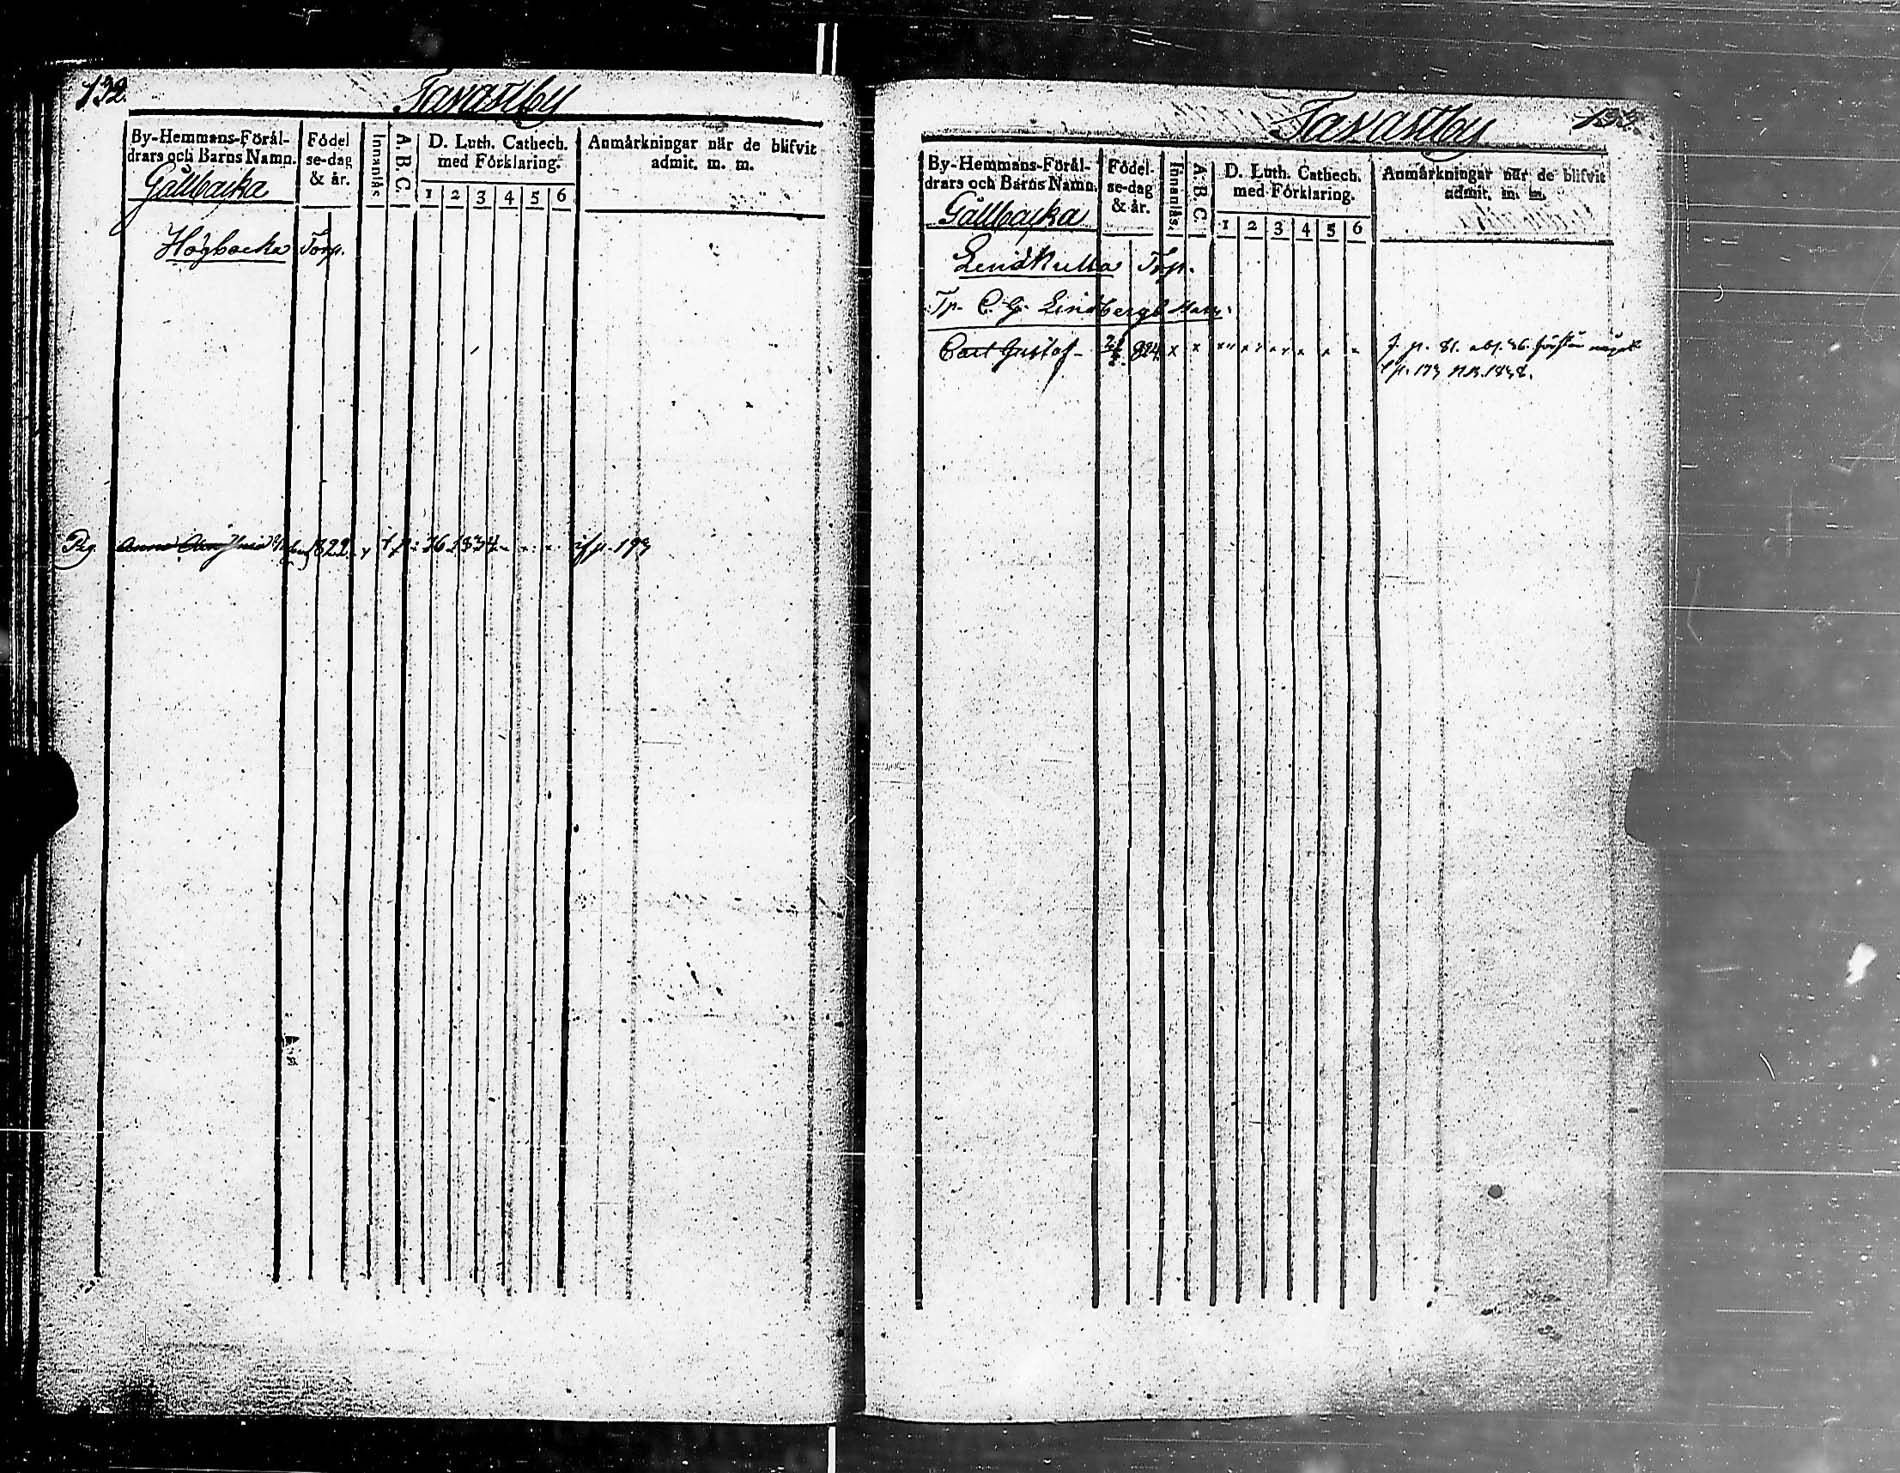 132.
Tavastby
By-Hemmans-Föräl-
drars och Barns Namn.
Födel
se-dag
& år.
Innanläs.
A. B. C.
D. Luth. Cathech.
med Förklaring.
1 2 3 4 5 6
Anmärkningar när de blifvit
admit. m. m.
Gållbacka
Högbacka Torp.
Pig. Anna 1822 1834 p. 193
Tavastby
133.
By-Hemmans-Föräl-
drars och Barns Namn.
Födel-
se-dag
& år.
Innanläs.
A. B. C.
D. Luth. Cathech.
med Förklaring.
1 2 3 4 5 6
Anmärkningar när de blifvit
admit. m. m.
Gållbacka
Lindkulla Torp.
Tp. C. G. Lindbergs
Carl Gustaf 824 x x p. 81.
p. 173 1838.